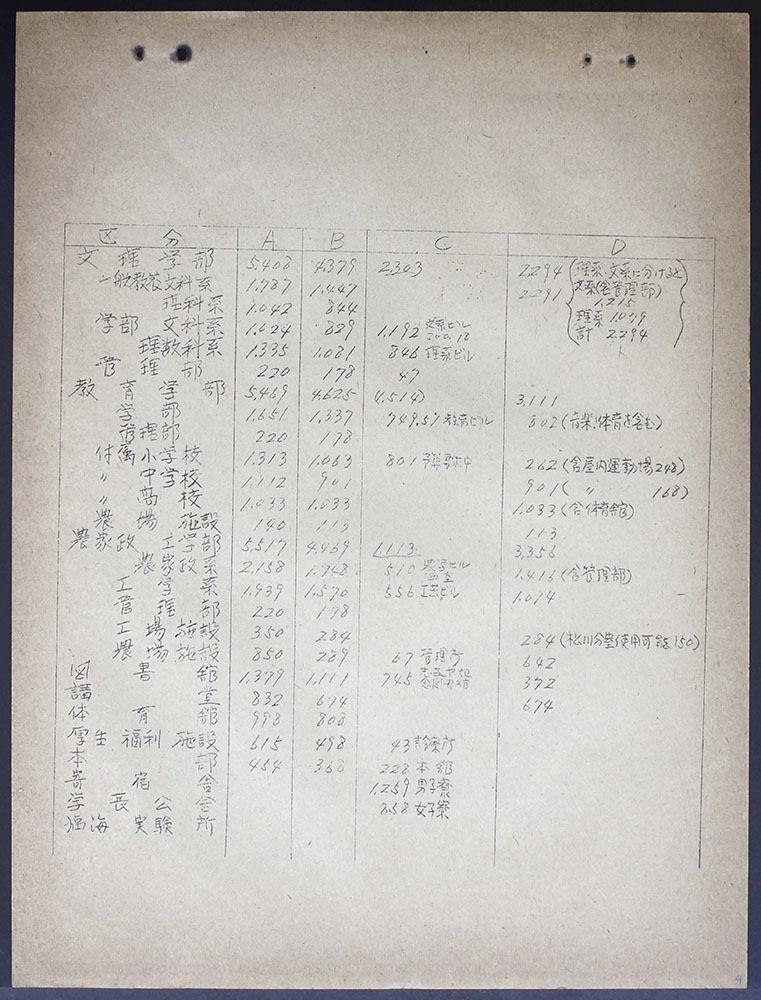 区分 A B C D
文理学部 5.408 4.379 2303 2294 (理系、文系に分けると
一般教養文科系 1.787 1.447 2291 文系(含管理部)
理科系 1.042 844 1.215
学部 文科系 1.024 829 1.192 文系ビル 理系 1.079
理数科系 1.335 1.081 846 理系ビル 計 2.294)
管理部 220 178 47
教育学部 5.469 4.625 (1.514) 3.111
学部 1.651 1.337 749.57 教育ビル 802 (音楽、体育を含む)
管理部 220 178
付属小学校 1.313 1.063 801 262 (含屋内運動場248)
〃 中学校 1.112 901 901 ( 〃 168)
〃 高校 1.033 1.033 1.033 (含体育館)
農場施設 140 113 113
農家政工学部 5.517 4.469 1.113 3.356
農家政系 2.158 1.748 510 農学ビル 1.416 (含管理部)
工学系 1.939 1.570 556 工業ビル 1.014
管理部 220 178
工場施設 350 284 284 (松川分塾使用可能150)
農場施設 850 289 67 管理所 642
図書館 1.379 1.111 745 372
講堂 832 674 674
体育館 998 808
厚生福利施設 615 498 43 診療所
本部 454 368 228 本館
寄宿舎 1.259 男子寮
学長公舎 858 女子寮
海実験所
4